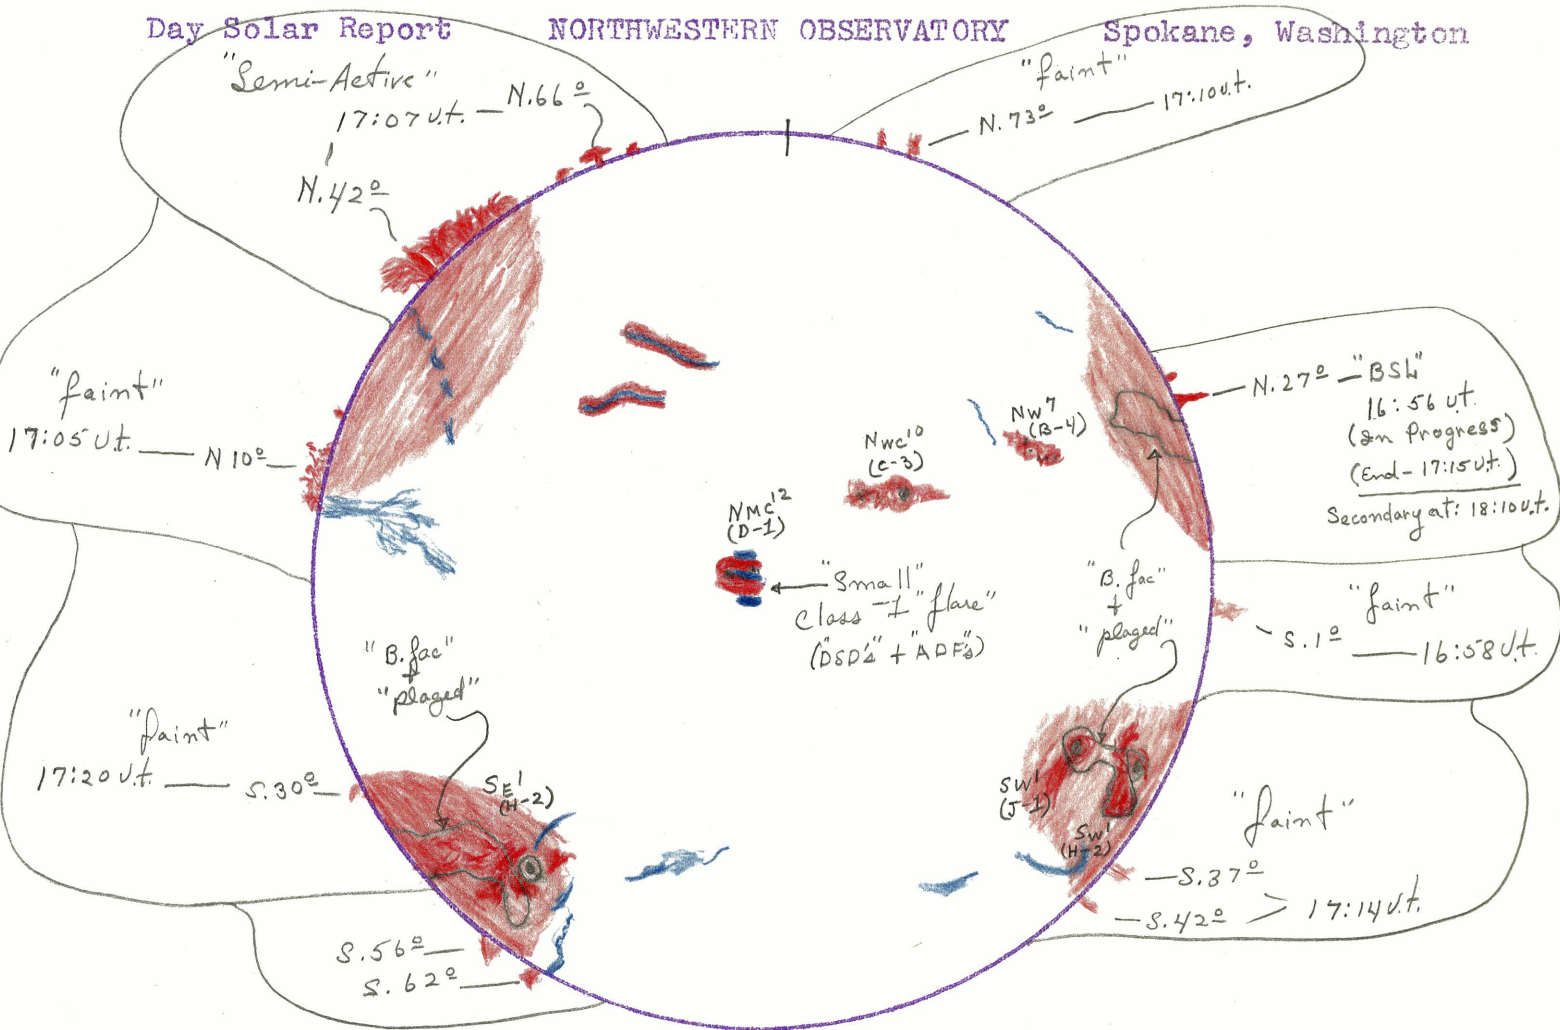 Day Solar Report NORTHWESTERN OBSERVATORY Spokane, Washington
"Semi-Active"
17:07 U.t. — N.66º
N.42º
"faint"
17:10 U.t.
N.73º
"faint"
17:05 U.t. — N 10º
N.27º — "BSL"
16:56 U.t.
(In Progress)
(End - 17:15 U.t.)
Secondary at: 18:10 U.t.
NW⁷
(B-4)
NWC¹⁰
(C-3)
NMC¹²
(D-1)
"Small"
Class -1 "flare"
("DSD's" + "ADF's)
"B.fac"
+
"plaged"
"faint"
S.1º — 16:58 U.t.
"B.fac"
+
"plaged"
"faint"
17:20 U.t. — S.30º
SE¹
(H-2)
SW¹
(J-1)
SW¹
(H-2)
"faint"
S.37º
S.42º > 17:14 U.t.
S.56º
S.62º